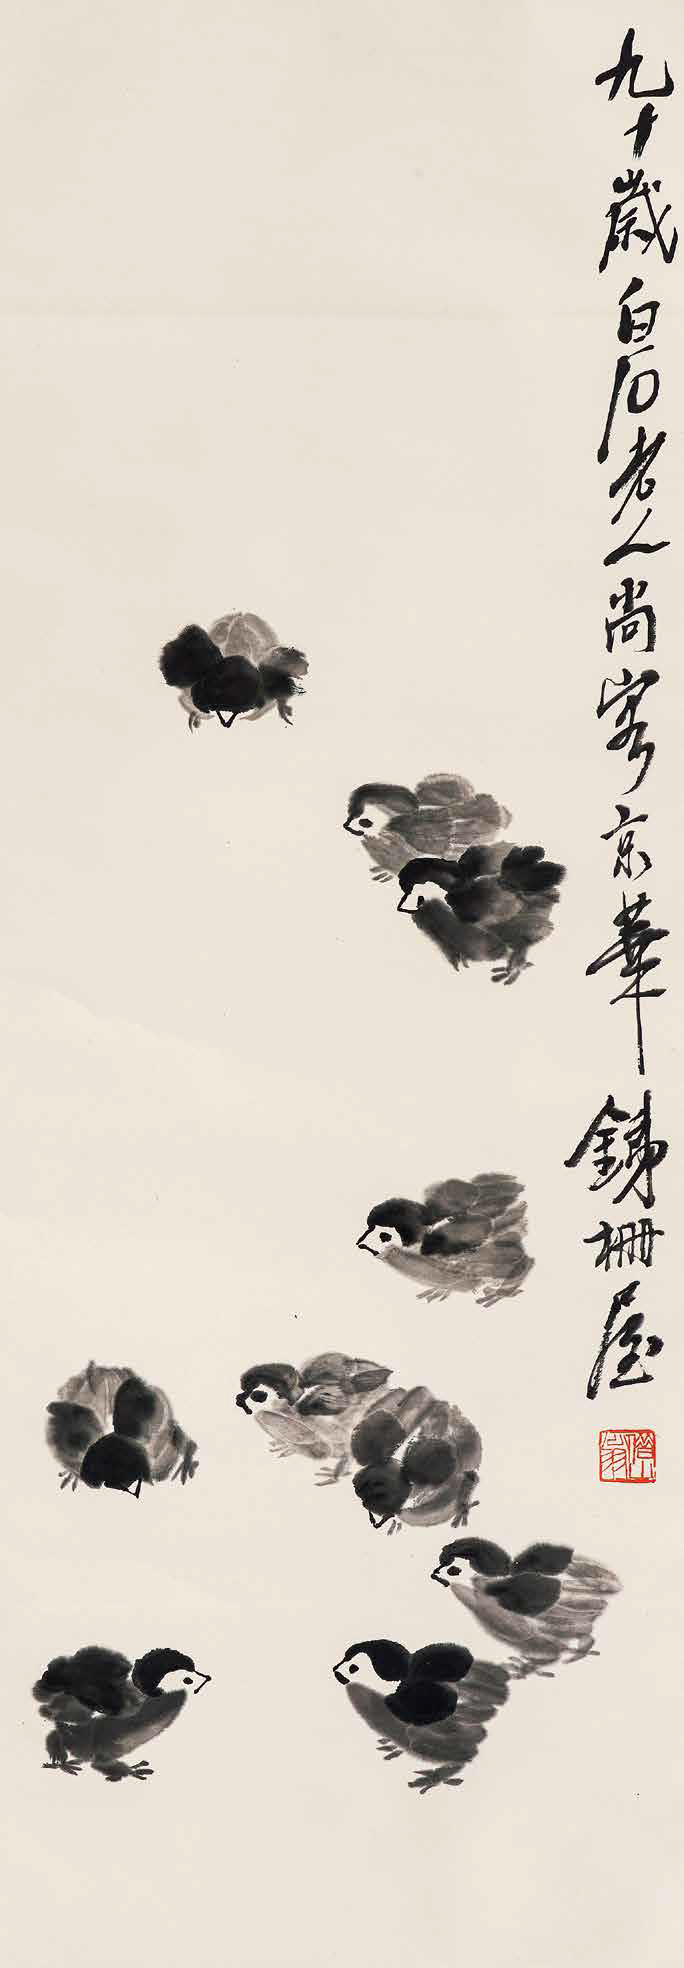 九十歲白石老人尚客京華鐵柵屋